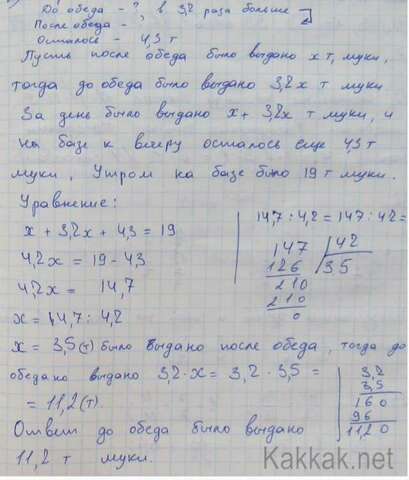 До обеда - ?, в 3,2 раза больше
После обеда -
Осталось - 4,3 т
Пусть после обеда было выдано x т, муки,
тогда до обеда было выдано 3,2x т муки
За день было выдано x + 3,2x т муки, и
на базе к вечеру осталось еще 4,3 т
муки, Утром на базе было 19 т муки.
Уравнение:
x + 3,2x + 4,3 = 19
4,2x = 19 - 4,3
4,2x = 14,7
x = 14,7 : 4,2
14,7 : 4,2 = 147 : 42 =
147 42
126 3,5
210
210
0
x = 3,5 (т) было выдано после обеда, тогда до
обедано выдано 3,2 · x = 3,2 · 3,5 =
= 11,2 (т).
3,2
3,5
160
96
11,20
Ответ до обеда было выдано
11,2 т муки.
Kakkak.net